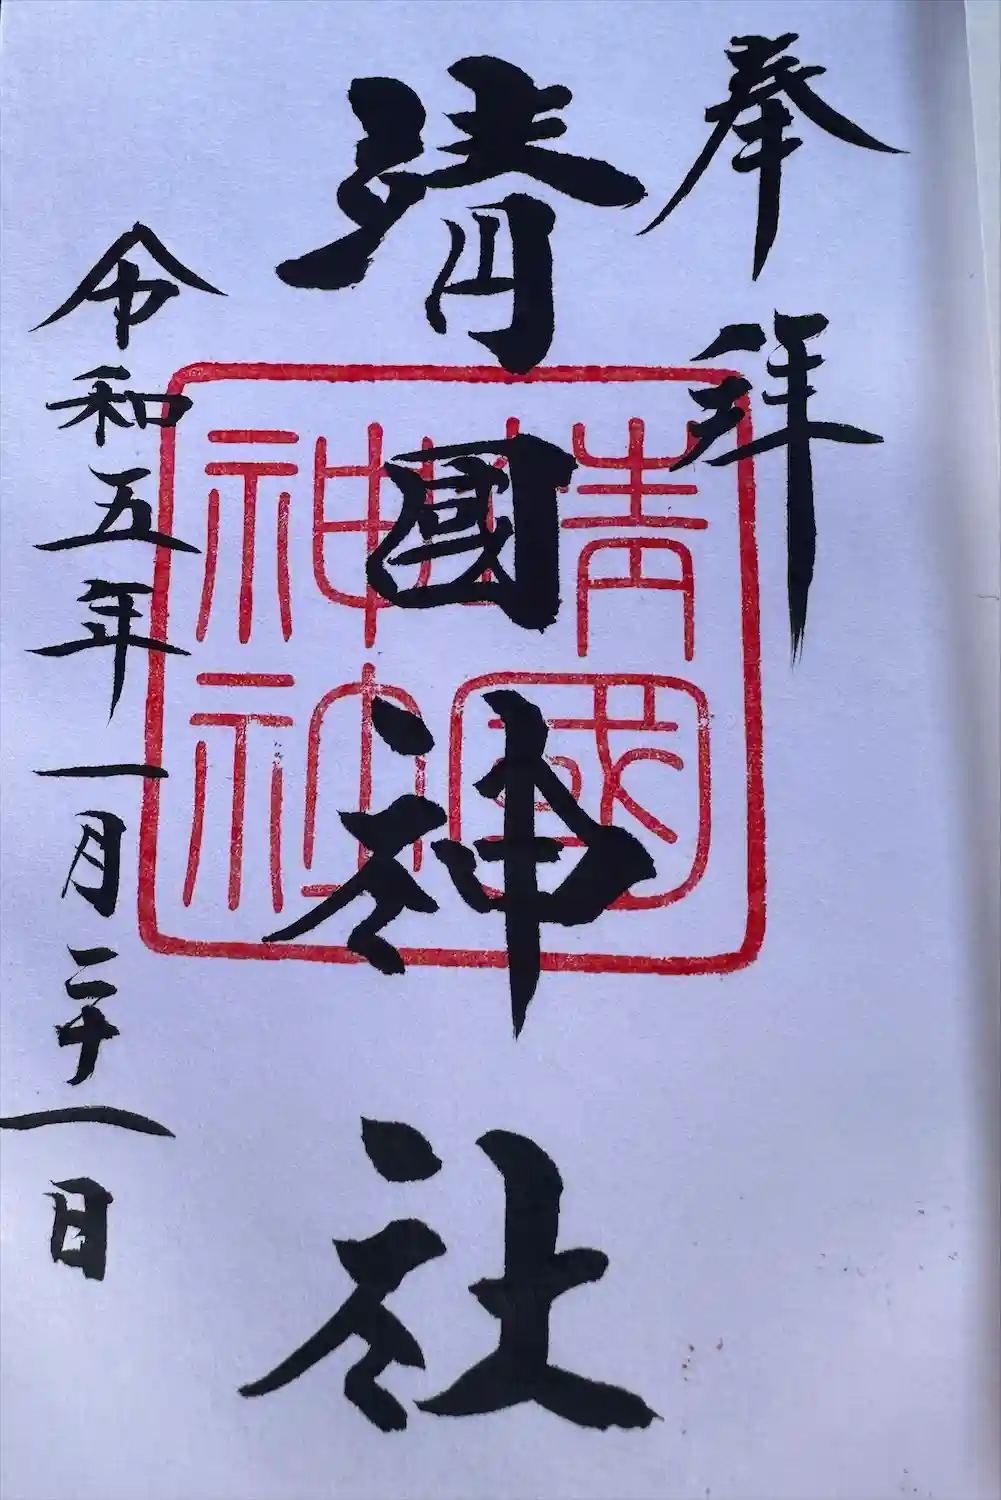 奉拝
清國神社
令和五年一月二十一日
清國
神社